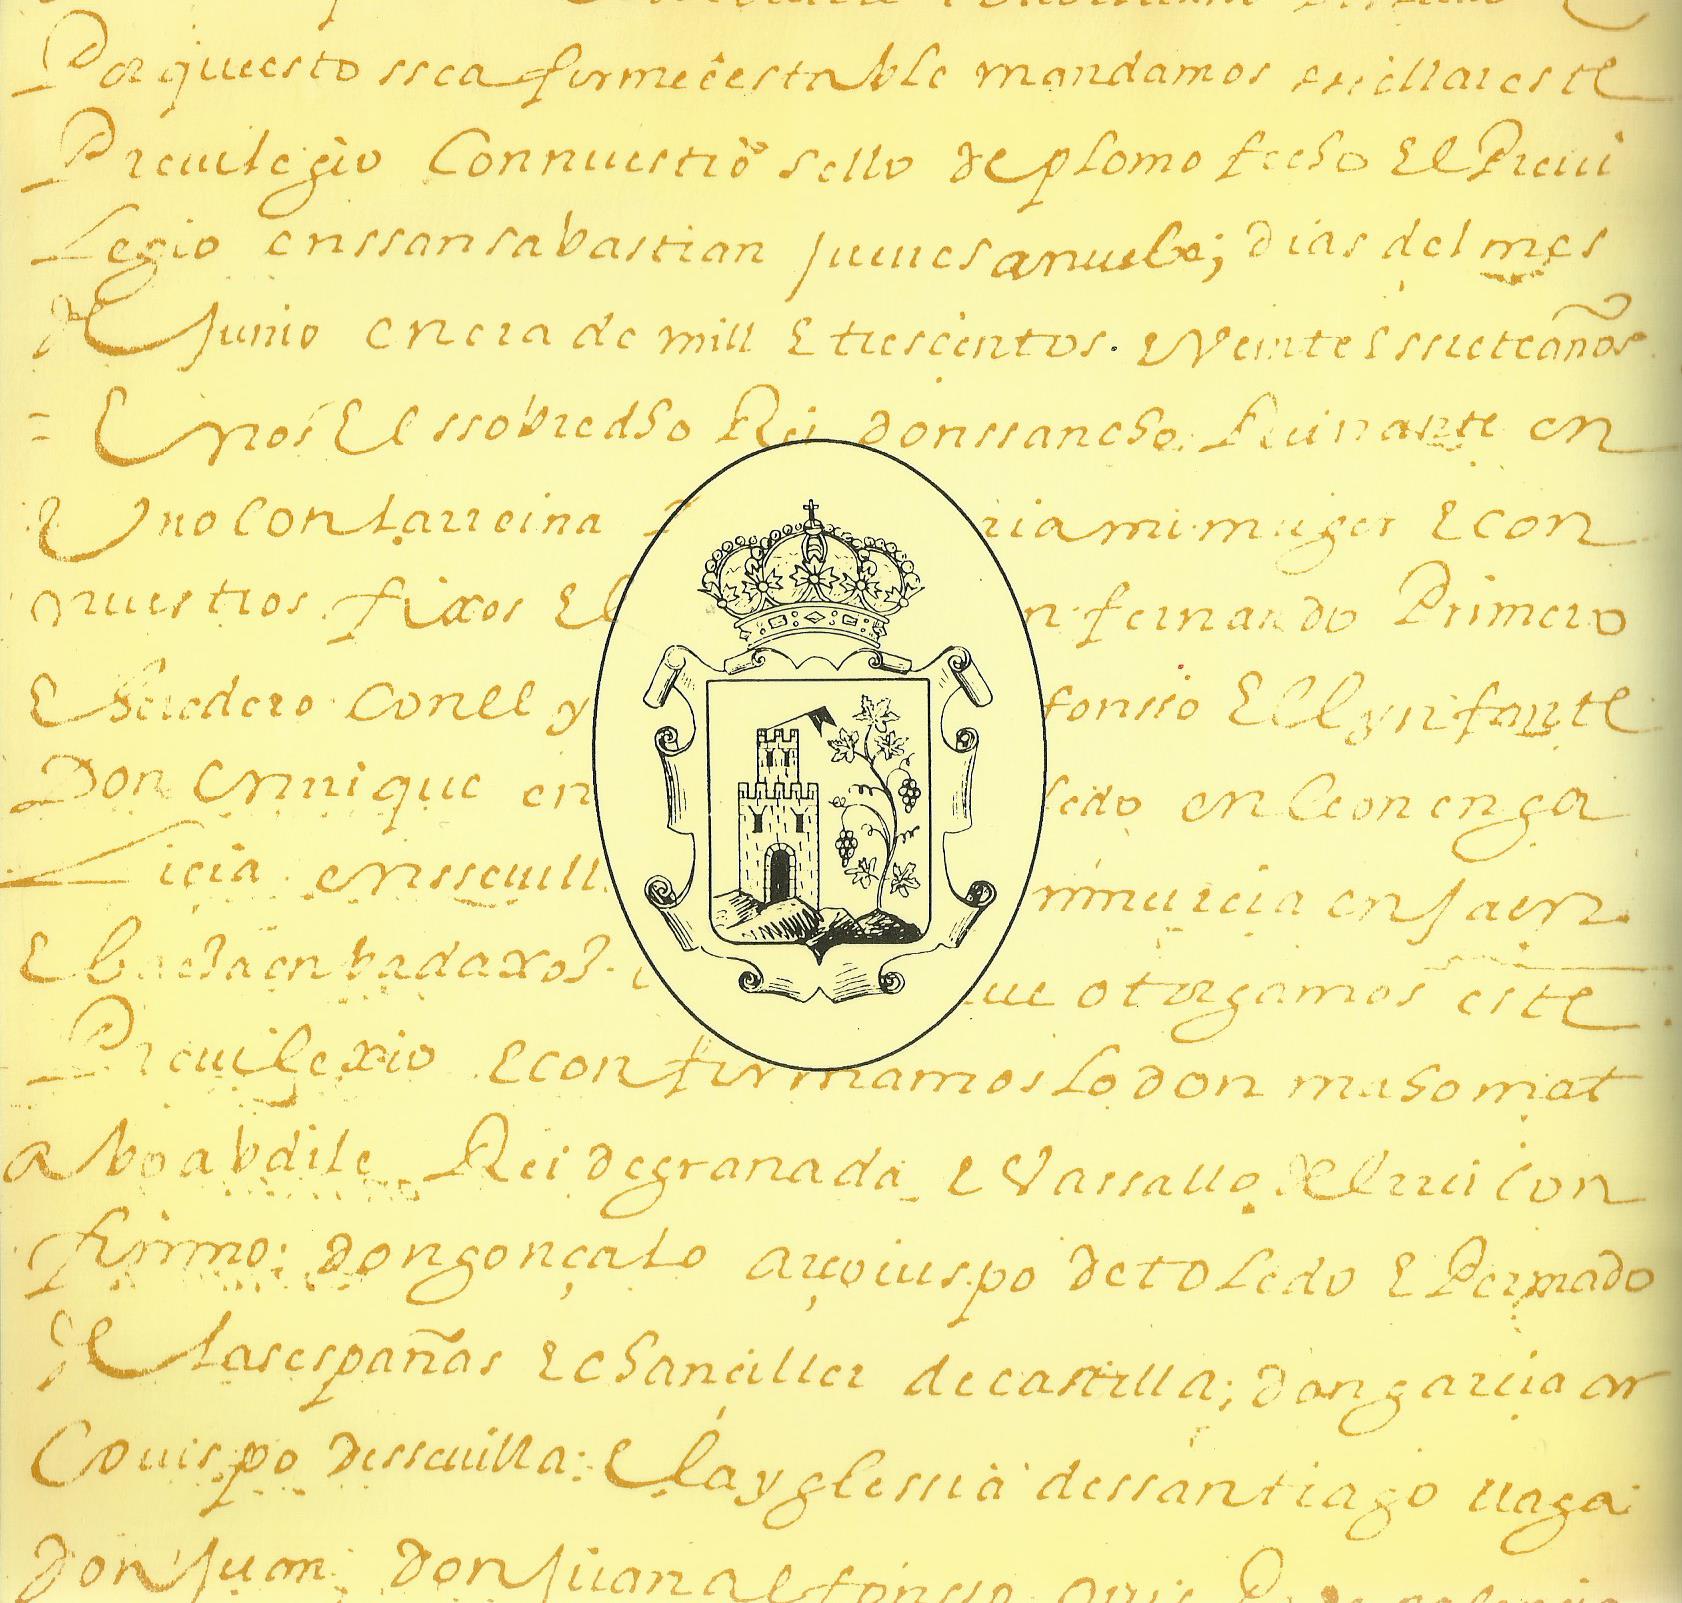 Por que esto ssea firme e estable mandamos ssellar este
Preuilegio Con nuestro sello de plomo fecho El Preui
Legio en ssan sabastian jueues a nuebe; dias del mes
de Junio en era de mill E trescientos. E Veinte E ssiete años
= E nos El ssobredho Rei don ssancho. Reinante en
Uno con la rreina ria mi muger E con
nuestros fixos El n fernando Primero
E heredero con ell y fonsso E ll ynfante
Don enrrique en ledo en leon en ga
Licia en sseuill n murcia en Jaen
E baesa en badaxos. ue otorgamos este
Preuilexio E confirmamoslo don mahomat
aboabdile Rei de granada E Vassallo del rrei Con
firmo: don gonçalo arçouispo de toledo E Permado
de las españas E chanciller de castilla; don garcia ar
Çouispo de sseuilla: E la yglessia de ssantiago uaga
don Juan don Juan alfonsso